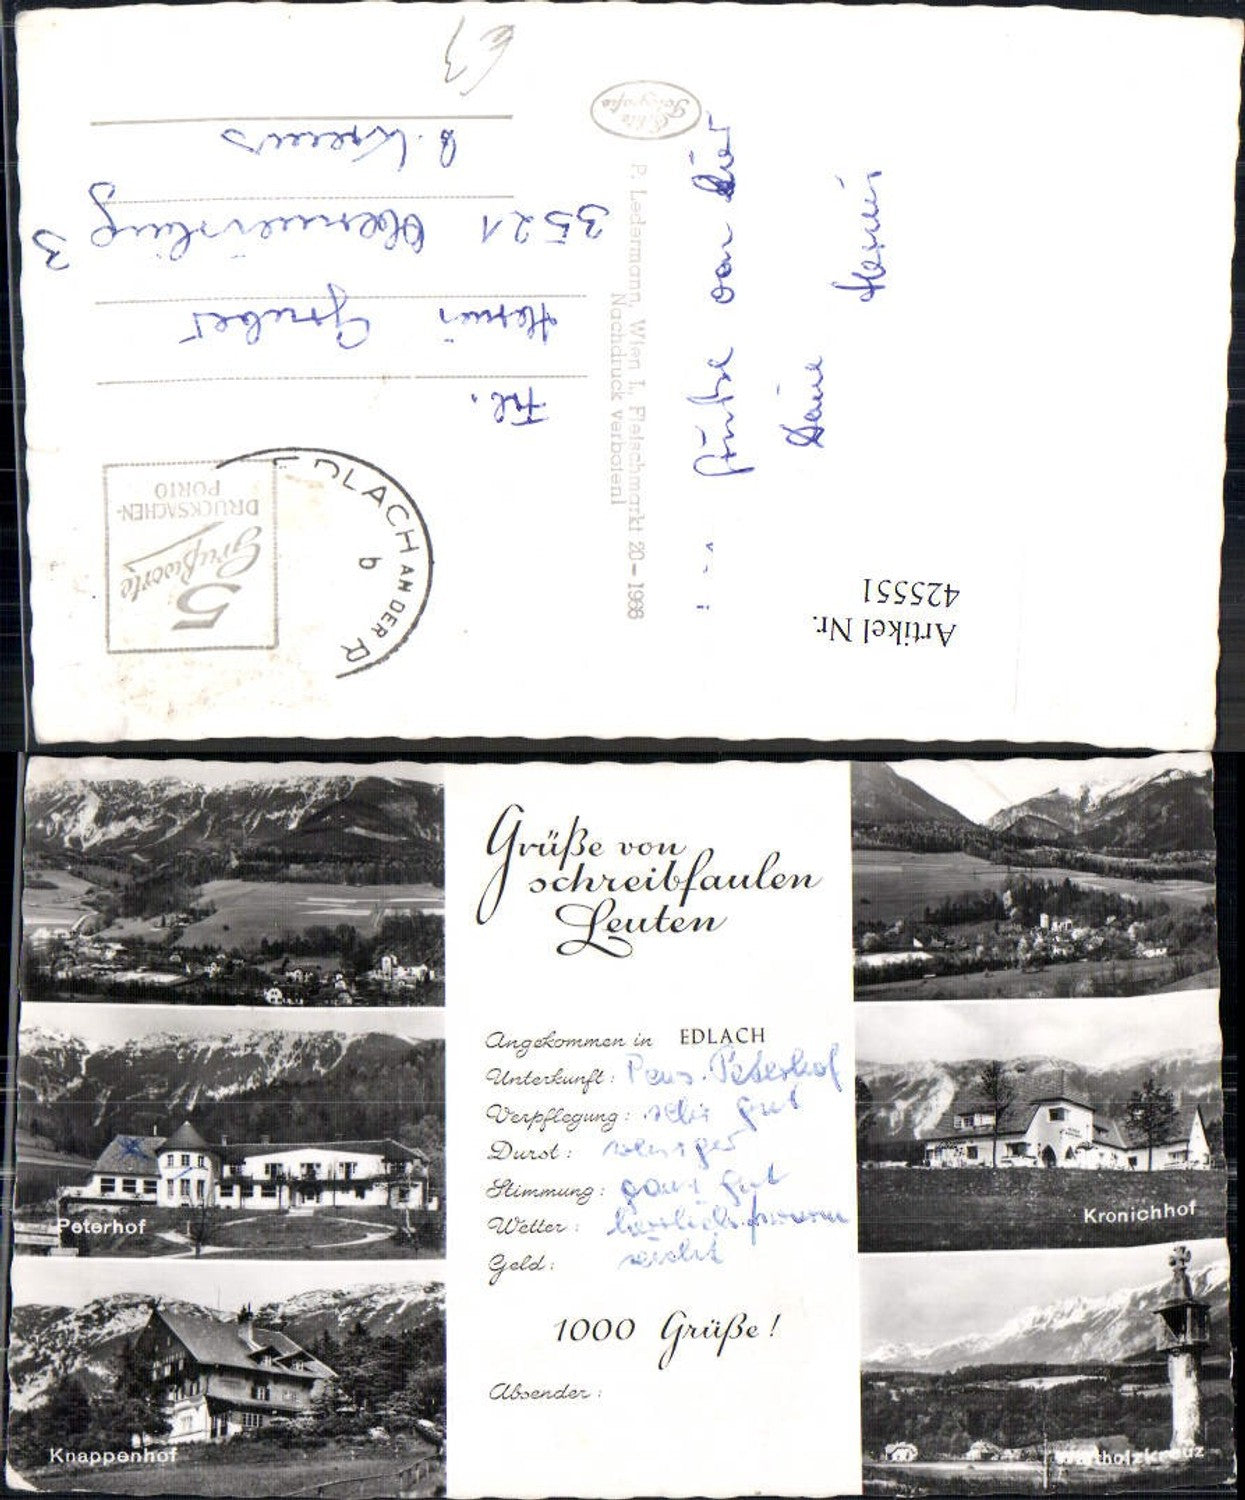 € 3
Echte Fotografie
P. Ledermann, Wien I., Fleischmarkt 20 — 1966
Nachdruck verboten!
5
Grußworte
DRUCKSACHEN-
PORTO
EDLACH AN DER R
b
Frl.
Hermi Gruber
3521 Obermeisling 3
b. Krems
Grüße von hier
Deine
Hermi
Artikel Nr.
425551
Grüße von
schreibfaulen
Leuten
Angekommen in EDLACH
Unterkunft: Pens. Peterhof
Verpflegung: sehr gut
Durst: weniger
Stimmung: ganz gut
Wetter: herrlich warm
Geld: reicht
1000 Grüße!
Absender:
Peterhof
Knappenhof
Kronichhof
Wartholzkreuz